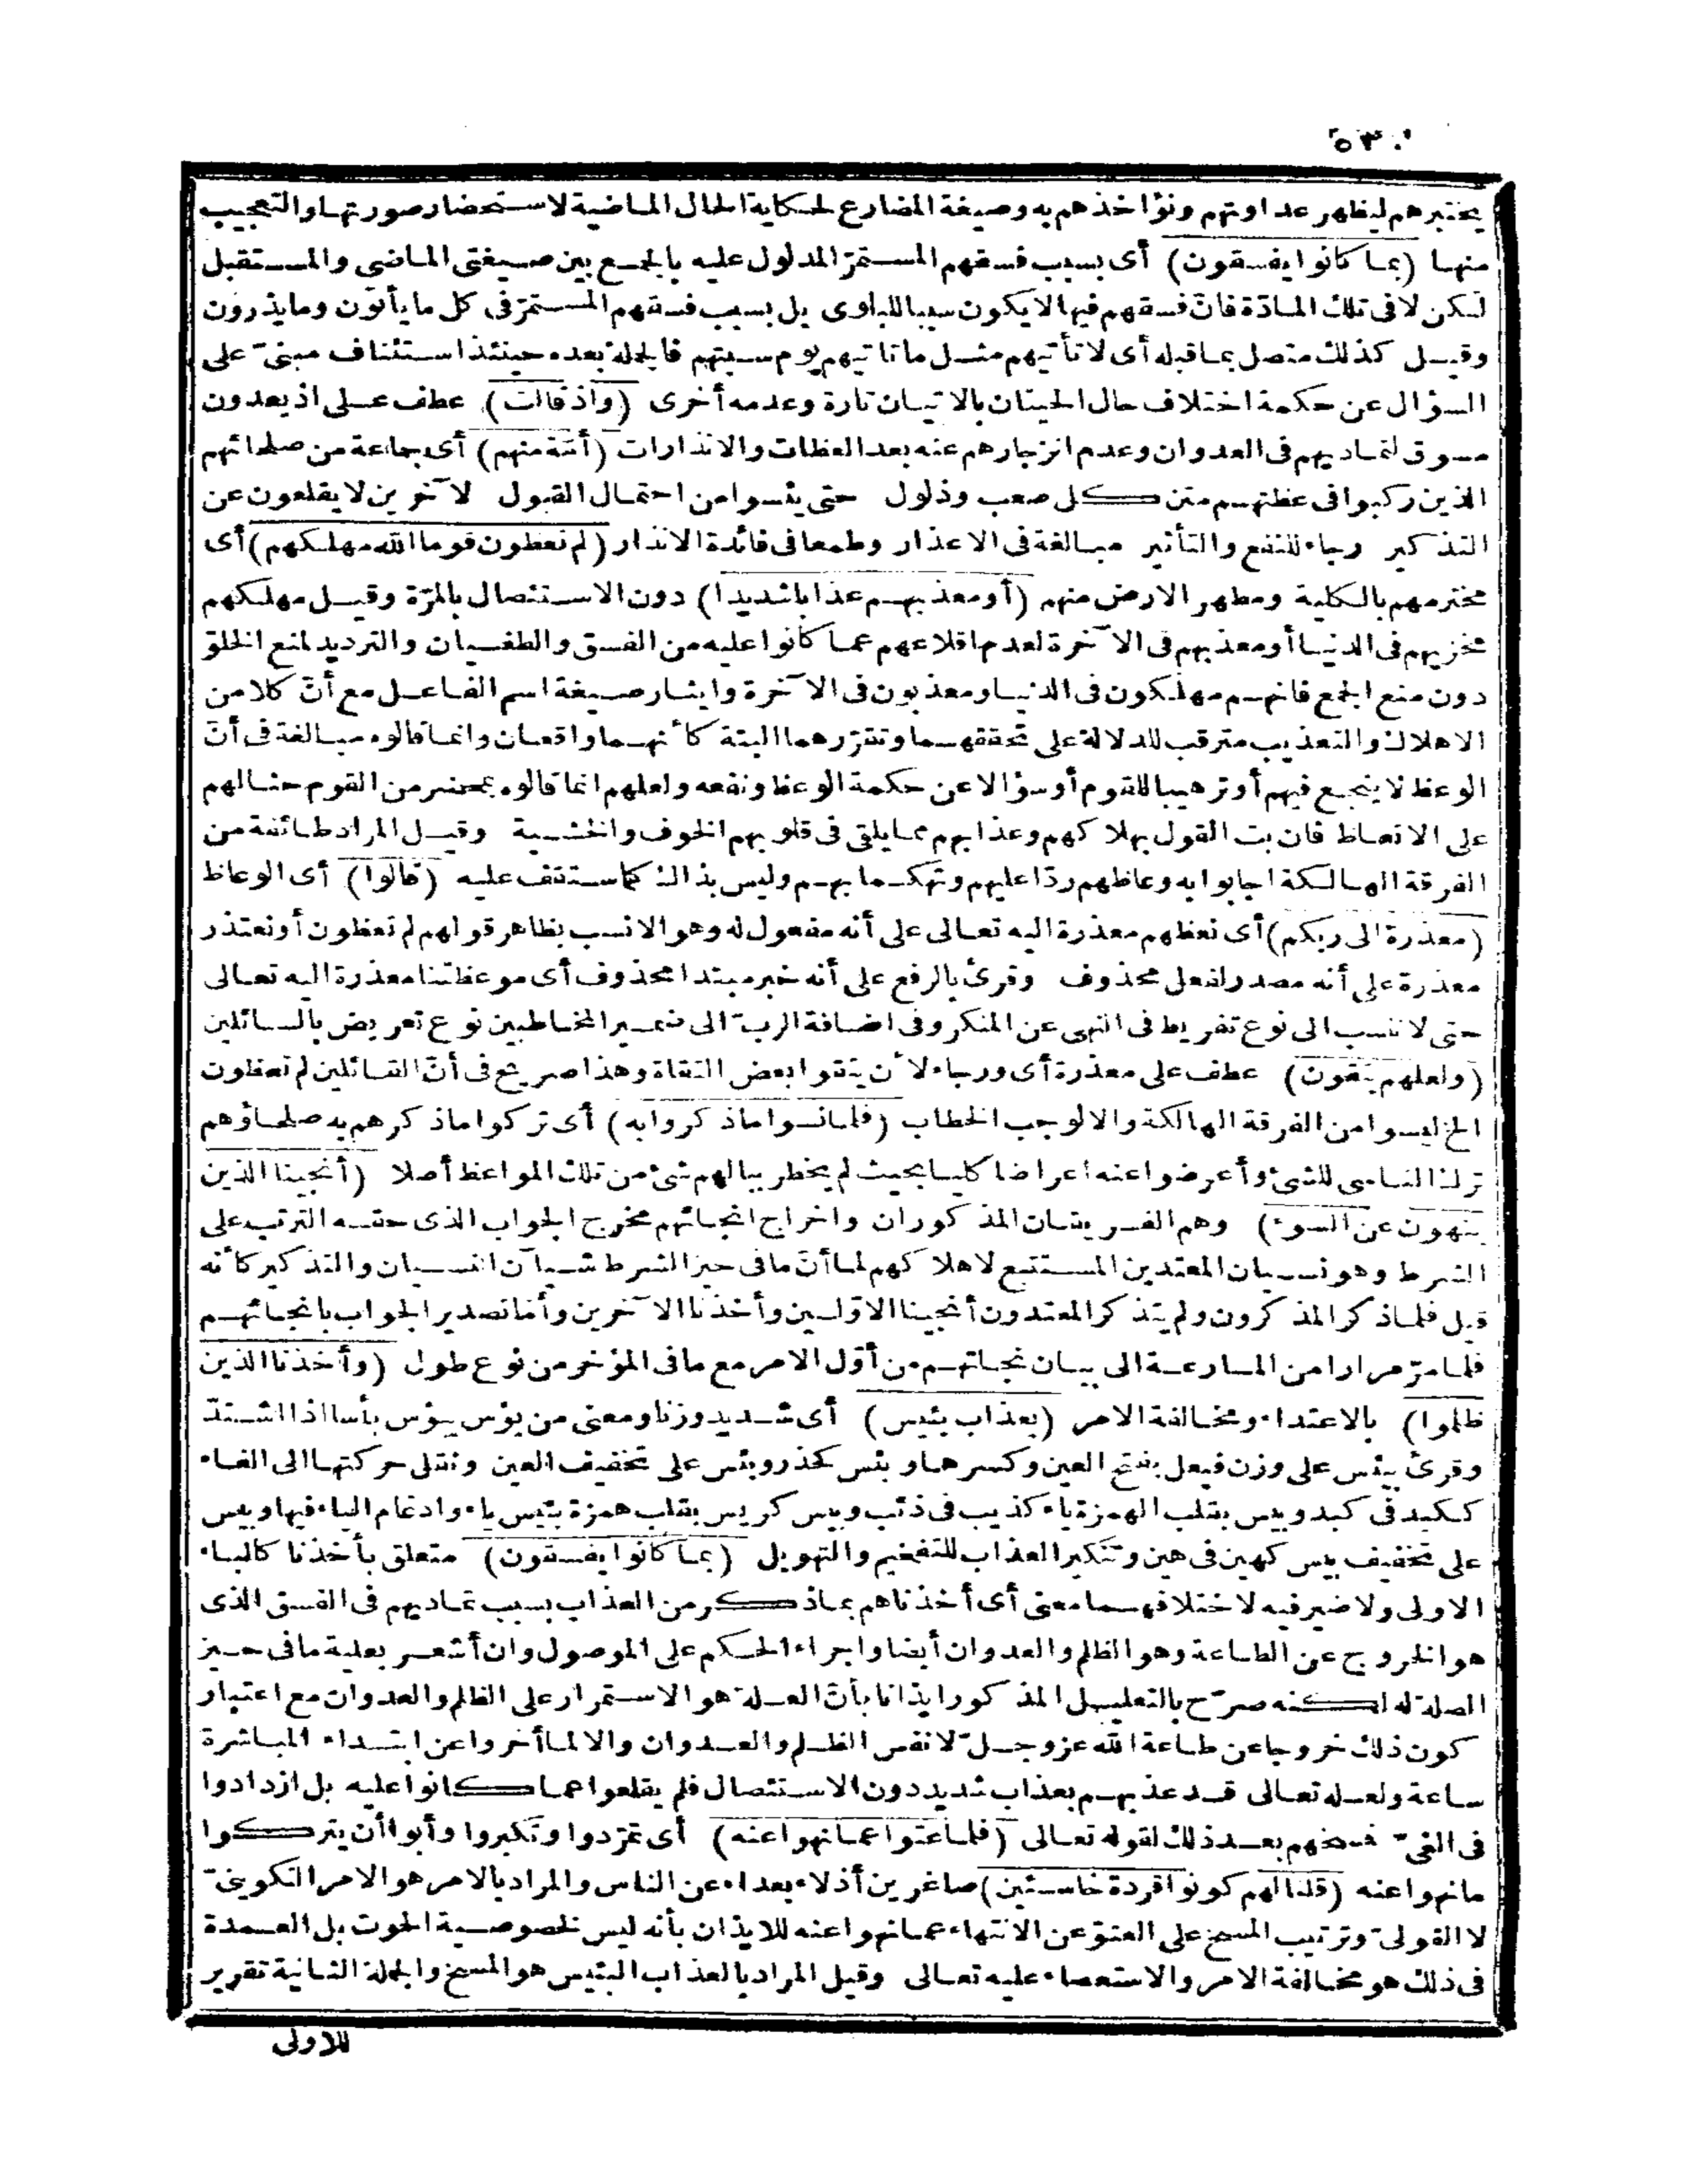 ٥٣٠
يختبرهم ليظهر عداوتهم ونؤاخذهم به وصيغة المضارع لحكاية الحال الماضية لاستحضار صورتها والتعجيب
منها (بما كانوا يفسقون) أى بسبب فسقهم المستمرّ المدلول عليه بالجمع بين صيغتى الماضى والمستقبل
لكن لا فى تلك المادّة فانّ فسقهم فيها لا يكون سببا للبلوى بل بسبب فسقهم المستمرّ فى كل ما يأتون وما يذرون
وقيل كذلك متصل بما قبله أى لا تأتيهم مثل ما تأتيهم يوم سبتهم فالجملة بعده حينئذ استئناف مبنىّ على
السؤال عن حكمة اختلاف حال الحيتان بالاتيان تارة وعدمه أخرى (واذ قالت) عطف على اذ يعدون
مسوق لتماديهم فى العدوان وعدم انزجارهم عنه بعد العظات والانذارات (أمّة منهم) أى جماعة من صلحائهم
الذين ركبوا فى عظتهم متن كل صعب وذلول حتى يئسوا من احتمال القبول لآخرين لا يقلعون عن
التذكير رجاء للنفع والتأثير مبالغة فى الاعذار وطمعا فى فائدة الانذار (لم تعظون قوما الله مهلكهم) أى
مخترمهم بالكلية ومطهر الارض منهم (أو معذبهم عذابا شديدا) دون الاستئصال بالمرّة وقيل مهلكهم
مخزيهم فى الدنيا أو معذبهم فى الآخرة لعدم اقلاعهم عما كانوا عليه من الفسق والطغيان والترديد لمنع الخلوّ
دون منع الجمع فانهم مهلكون فى الدنيا ومعذبون فى الآخرة وايثار صيغة اسم الفاعل مع أنّ كلا من
الاهلاك والتعذيب مترقب للدلالة على تحققهما وتقرّرهما البتة كأنهما واقعان وانما قالوه مبالغة فى أنّ
الوعظ لا ينجع فيهم أو ترهيبا للقوم أو سؤالا عن حكمة الوعظ ونفعه ولعلهم انما قالوه بمحضر من القوم حثا لهم
على الاتعاظ فان بت القول بهلاكهم وعذابهم مما يلقى فى قلوبهم الخوف والخشية وقيل المراد طائفة من
الفرقة الهالكة اجابوا به وعاظهم ردّا عليهم وتهكما بهم وليس بذاك كما ستقف عليه (قالوا) أى الوعاظ
(معذرة الى ربكم) أى نعظهم معذرة اليه تعالى على أنه مفعول له وهو الانسب بظاهر قولهم لم تعظون أو نعتذر
معذرة على أنه مصدر لفعل محذوف وقرئ بالرفع على أنه خبر مبتدا محذوف أى موعظتنا معذرة اليه تعالى
حتى لا ننسب الى نوع تفريط فى النهى عن المنكر وفى اضافة الربّ الى ضمير المخاطبين نوع تعريض بالسائلين
(ولعلهم يتقون) عطف على معذرة أى ورجاء لأن يتقوا بعض التقاة وهذا صريح فى أنّ القائلين لم تعظون
الخ ليسوا من الفرقة الهالكة والا لوجب الخطاب (فلما نسوا ما ذكروا به) أى تركوا ما ذكرهم به صلحاؤهم
ترك الناسى للشئ وأعرضوا عنه اعراضا كليا بحيث لم يخطر ببالهم شئ من تلك المواعظ أصلا (أنجينا الذين
ينهون عن السوء) وهم الفريقان المذكوران واخراج انجائهم مخرج الجواب الذى حقه الترتب على
الشرط وهو نسيان المعتدين المستتبع لاهلاكهم لما أنّ ما فى حيز الشرط شيآن النسيان والتذكير كأنه
قيل فلما ذكر المذكرون ولم يتذكر المعتدون أنجينا الاوّلين وأخذنا الآخرين وأمّا تصدير الجواب بانجائهم
فلما مرّ مرارا من المسارعة الى بيان نجاتهم من أوّل الامر مع ما فى المؤخر من نوع طول (وأخذنا الذين
ظلموا) بالاعتداء ومخالفة الامر (بعذاب بئيس) أى شديد وزنا ومعنى من بؤس يبؤس بأسا اذا اشتدّ
وقرئ بيئس على وزن فيعل بفتح العين وكسرها وبئس كحذر وبئس على تخفيف العين ونقل حركتها الى الفاء
ككبد فى كبد وبيس بقلب الهمزة ياء كذيب فى ذئب وبيس كريس بقلب همزة بئيس ياء وادغام الياء فيها وبيس
على تخفيف بيس كهين فى هين وتنكير العذاب للتفخيم والتهويل (بما كانوا يفسقون) متعلق بأخذنا كالباء
الاولى ولا ضير فيه لاختلافهما معنى أى أخذناهم بما ذكر من العذاب بسبب تماديهم فى الفسق الذى
هو الخروج عن الطاعة وهو الظلم والعدوان أيضا واجراء الحكم على الموصول وان أشعر بعلية ما فى حيز
الصلة له لكنه صرّح بالتعليل المذكور ايذانا بأنّ العلة هو الاستمرار على الظلم والعدوان مع اعتبار
كون ذلك خروجا عن طاعة الله عز وجلّ لا نفس الظلم والعدوان والا لما أخروا عن ابتداء المباشرة
ساعة ولعله تعالى قد عذبهم بعذاب شديد دون الاستئصال فلم يقلعوا عما كانوا عليه بل ازدادوا
فى الغىّ فمسخهم بعد ذلك لقوله تعالى (فلما عتوا عما نهوا عنه) أى تمرّدوا وتكبروا وأبوا أن يتركوا
ما نهوا عنه (قلنا لهم كونوا قردة خاسئين) صاغرين أذلاء بعداء عن الناس والمراد بالامر هو الامر التكوينىّ
لا القولىّ وترتيب المسخ على العتوّ عن الانتهاء عما نهوا عنه للايذان بأنه ليس لخصوصية الحوت بل العمدة
فى ذلك هو مخالفة الامر والاستعصاء عليه تعالى وقيل المراد بالعذاب البئيس هو المسخ والجملة الثانية تقرير
للاولى